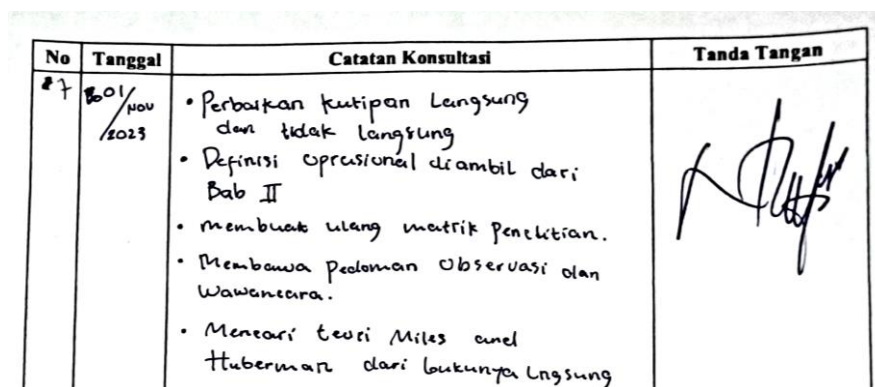 No Tanggal Catatan Konsultasi Tanda Tangan
7 01/Nov/2023
• Perbaikan kutipan Langsung
dan tidak langsung
• Definisi oprasional diambil dari
Bab II
• membuat ulang matrik penelitian.
• Membawa pedoman Observasi dan
Wawancara.
• Mencari teori Miles and
Huberman dari bukunya Lngsung